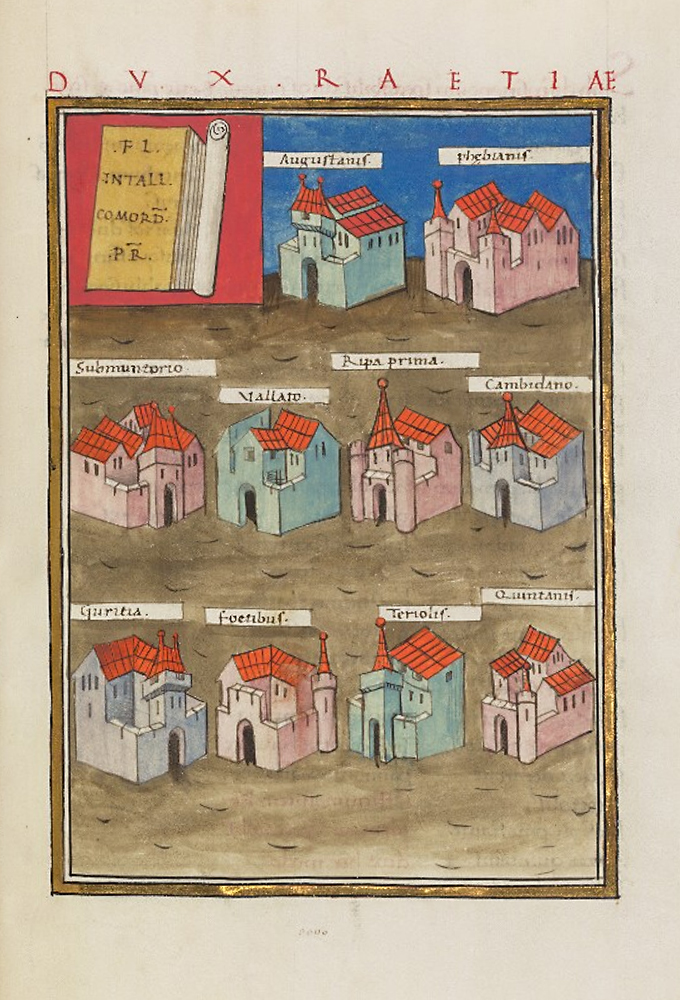 DVX·RAETIAE
·FL·
INTALL·
COMORD̄·
·PR̄·
Augustanis·
phębianis·
Submuntorio
Vallato·
Ripa prima·
Cambidano·
Guritia·
Foetibus·
Teriolis·
Quintanis·